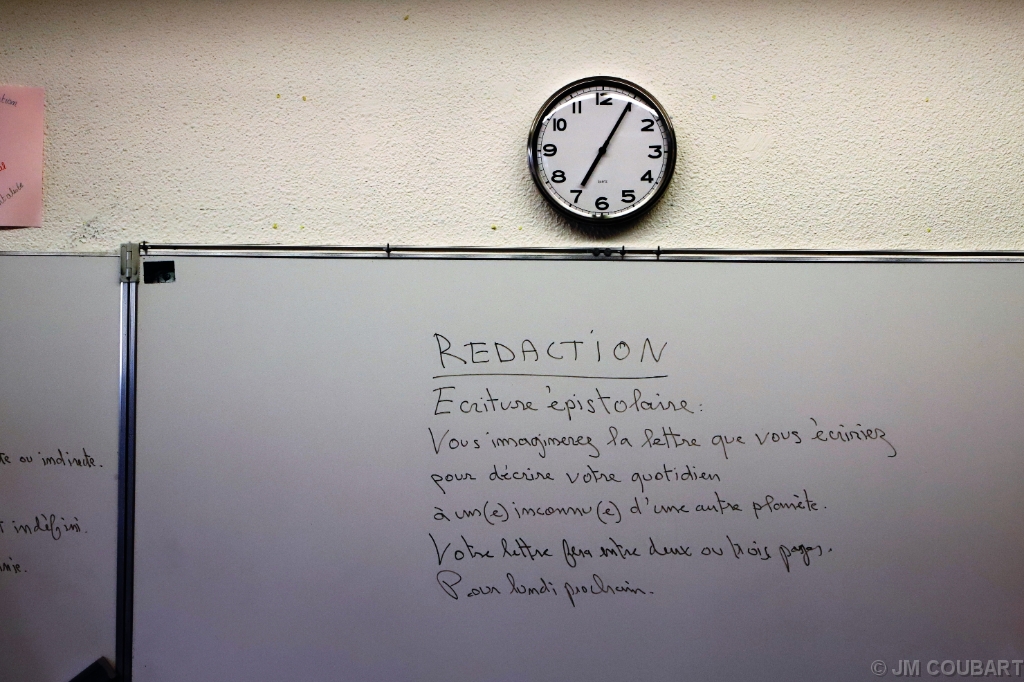 12
11
1
10
2
9
3
8
4
7
5
6
REDACTION
Ecriture épistolaire:
Vous imaginerez la lettre que vous écririez
pour décrire votre quotidien
à un(e) inconnu(e) d'une autre planète.
Votre lettre fera entre deux ou trois pages.
Pour lundi prochain.
te ou indirecte.
indéfini.
© JM COUBART